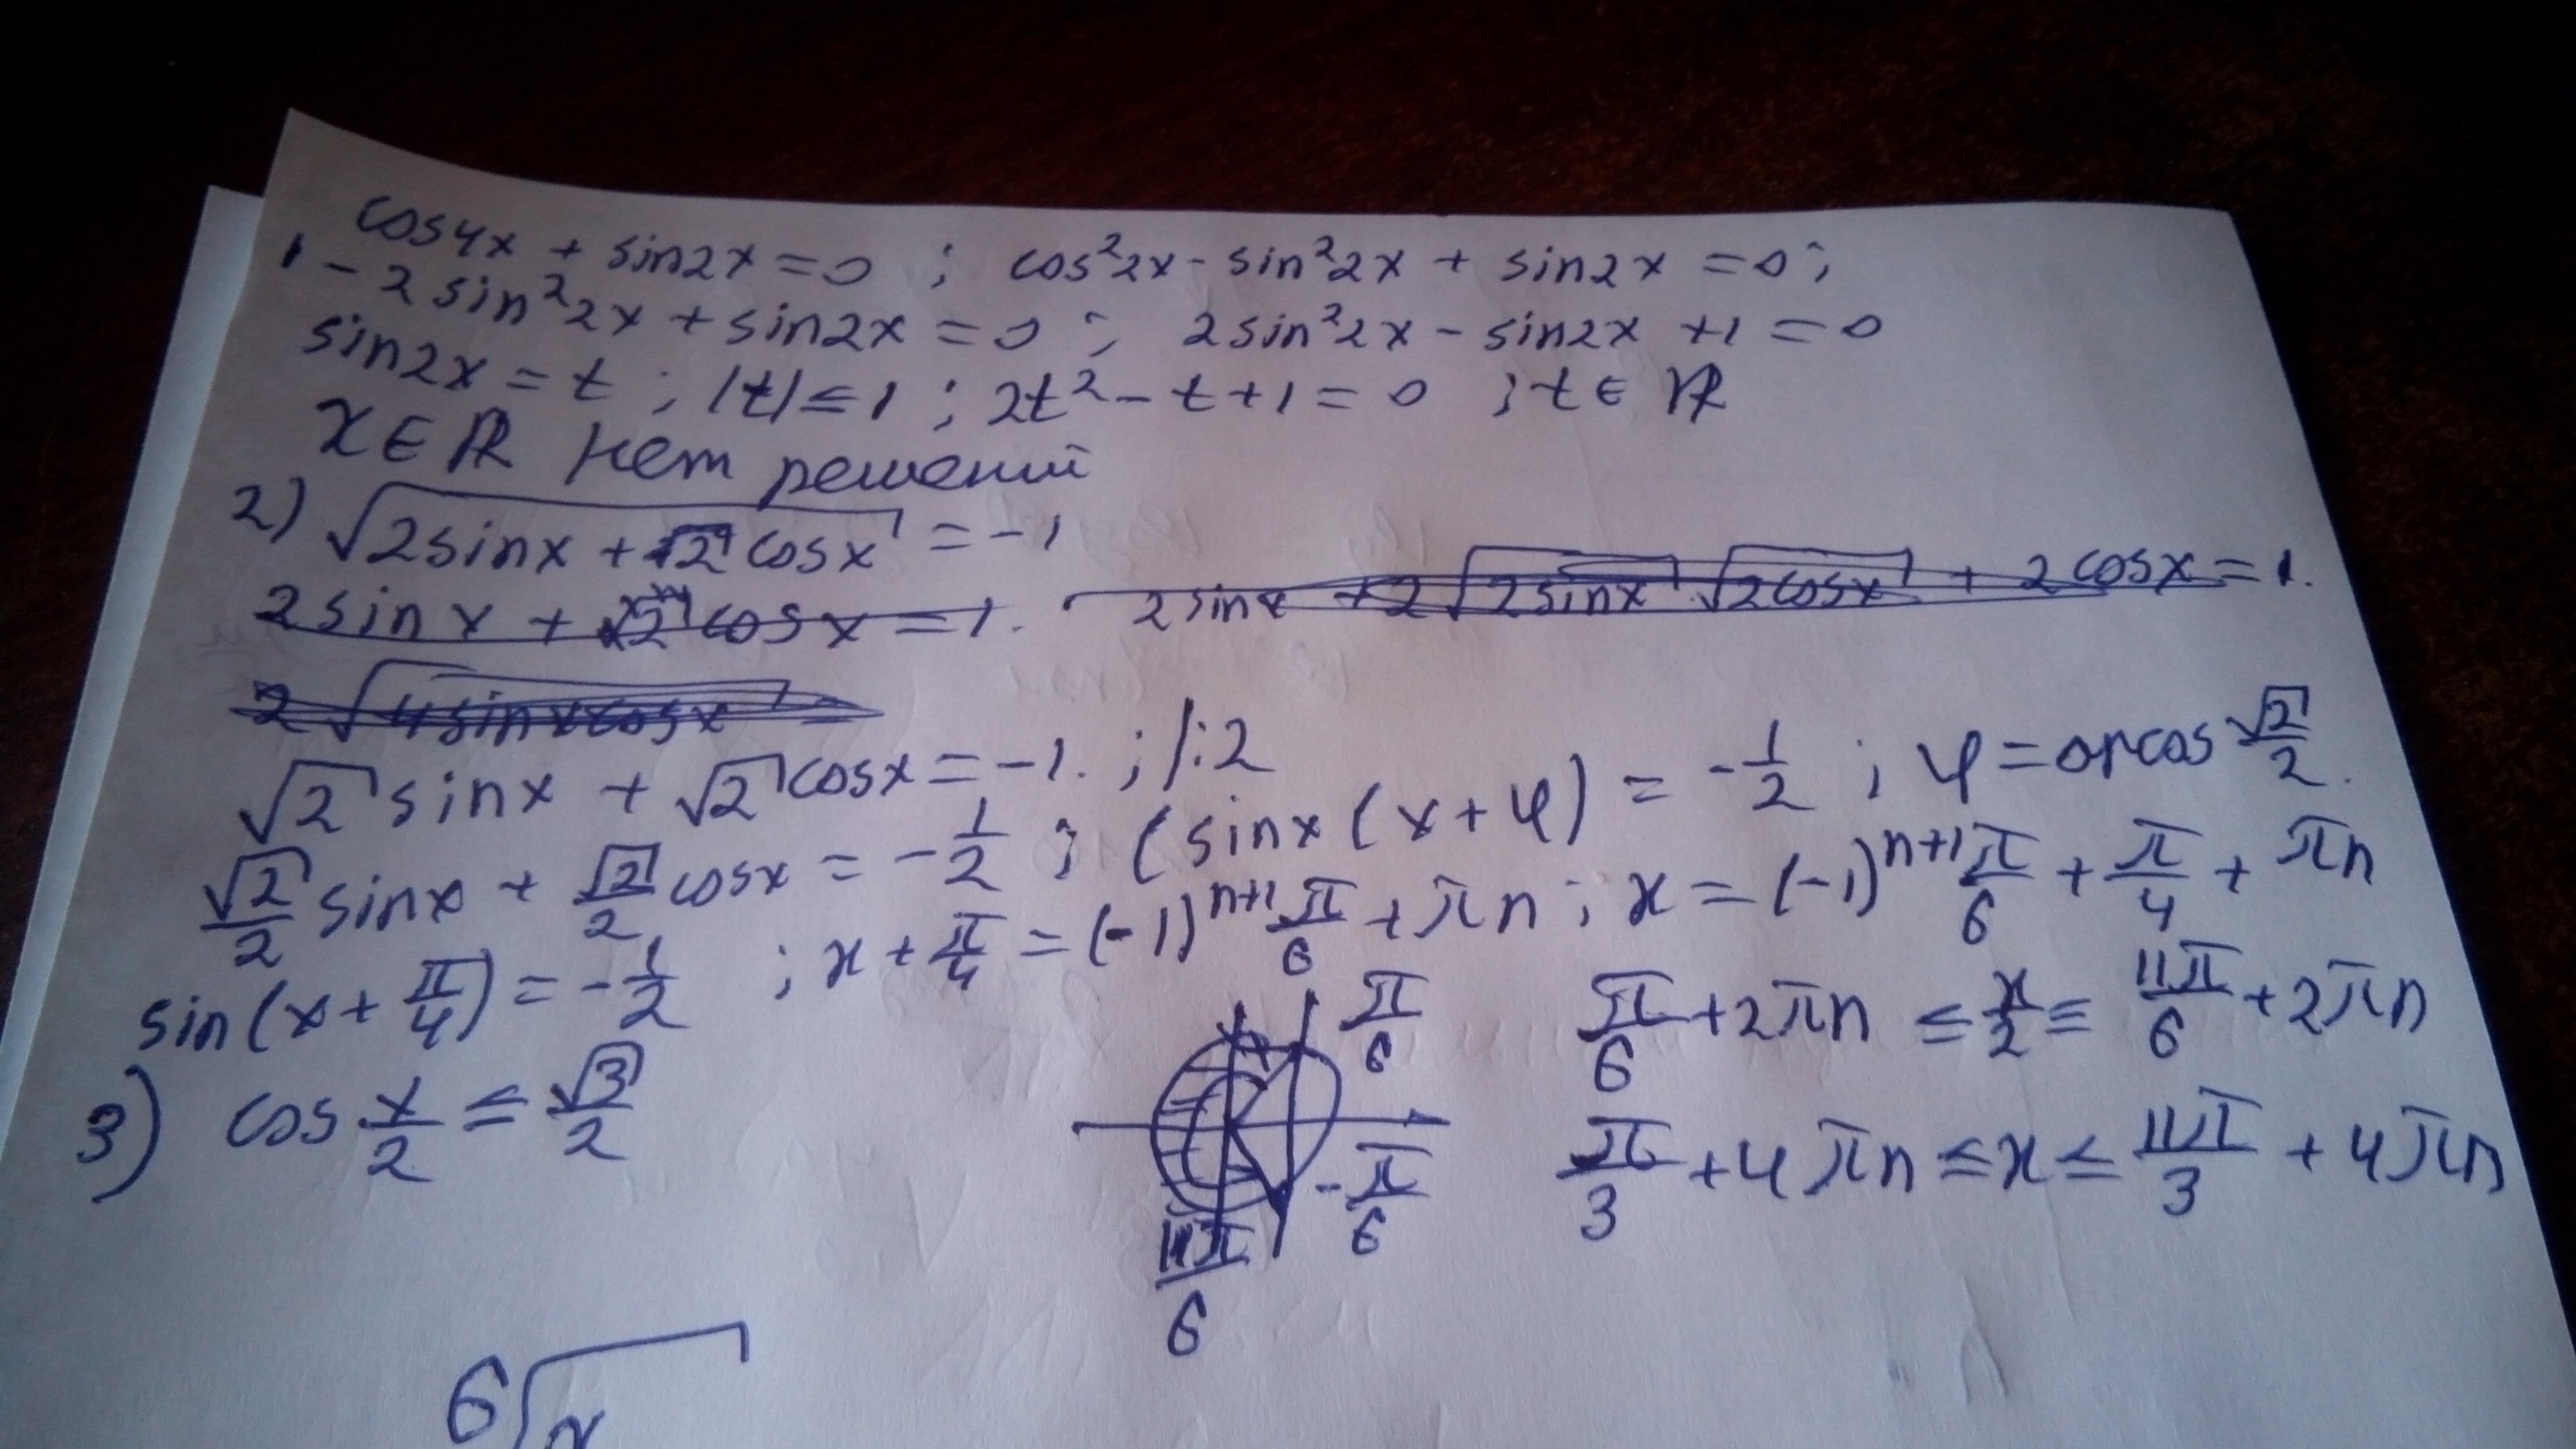 cos4x + sin2x = 0 ; cos²2x - sin²2x + sin2x = 0 ;
1 - 2sin²2x + sin2x = 0 ; 2sin²2x - sin2x + 1 = 0
sin2x = t ; |t| ≤ 1 ; 2t² - t + 1 = 0 ; t ∈ ℝ
x ∈ ℝ нет решений
2) √(2sinx + √2 cosx) = -1
2sinx + √2 cosx = 1. 2sinx + 2√(2sinx) √(2cosx) + 2cosx = 1.
2√(4sinxcosx) =
√2 sinx + √2 cosx = -1. ; /:2
√2/2 sinx + √2/2 cosx = -1/2 ; (sinx(x+φ) = -1/2 ; φ = arcos √2/2.
sin(x + π/4) = -1/2 ; x + π/4 = (-1)ⁿ⁺¹ π/6 + πn ; x = (-1)ⁿ⁺¹ π/6 + π/4 + πn
3) cos x/2 ≤ √3/2
π/6
-π/6
11π/6
π/6 + 2πn ≤ x/2 ≤ 11π/6 + 2πn
π/3 + 4πn ≤ x ≤ 11π/3 + 4πn
6√x